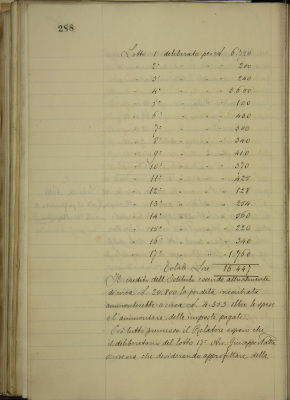 288
Lotto 1° deliberato per £. 6720
2° " " 200
3° " " 240
4° " " 5600
5° " " 100
6° " "
7° " " 500
8° " " 340
9° " " 410
10° " " 370
11° " " 425
12° " " 128
13° " " 254
14° " "
15° " " 220
16° " " 340
17° " " 1.760
Totale Lire 16447
Il credito dell'Istituto essendo attualmente
di circa £. 20.100 la perdita
ammonterebbe a circa £. 4.253 oltre le spese
e l'ammontare delle imposte pagate.
Ciò tutti premesso il Relatore espone che
il deliberatario del lotto 17° Giuseppe
che desiderando approfittare della